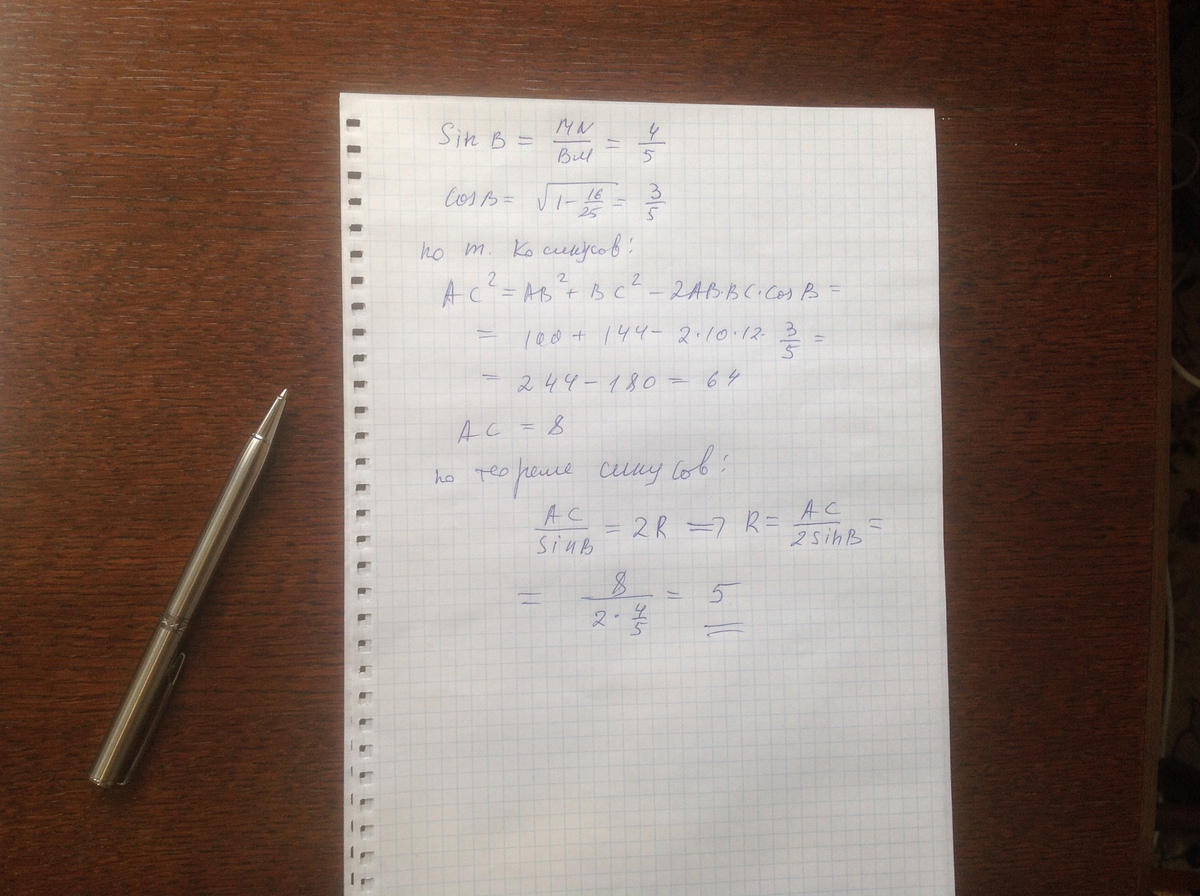 Sin B = MN/BM = 4/5
Cos B = √(1 - 16/25) = 3/5
по т. косинусов:
AC² = AB² + BC² - 2AB·BC·Cos B =
= 100 + 144 - 2·10·12·3/5 =
= 244 - 180 = 64
AC = 8
по теореме синусов:
AC/Sin B = 2R => R = AC/2Sin B =
= 8/(2·4/5) = 5